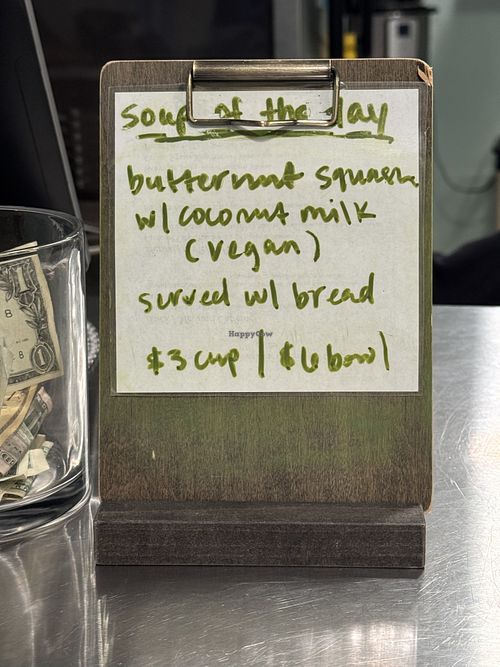 soup of the day
butternut squash
w/ coconut milk
(vegan)
surved w/ bread
HappyCow
$3 cup | $6 bowl
1